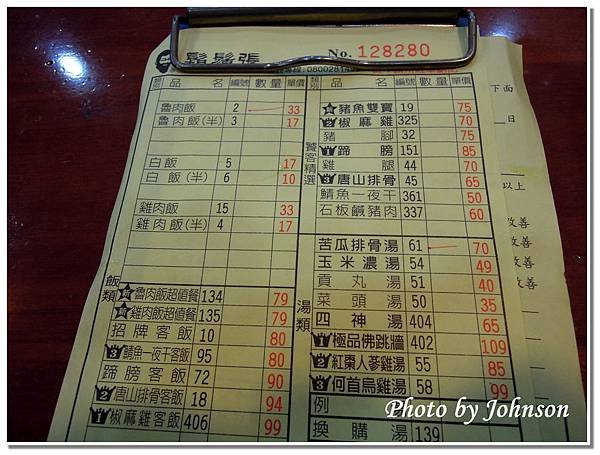 鬍鬚張
No. 128280
類別 品名 編號 數量 單價
魯肉飯 2 33
魯肉飯(半) 3 17
白飯 5 17
白飯(半) 6 10
雞肉飯 15 33
雞肉飯(半) 4 17
飯類
魯肉飯超值餐 134 79
雞肉飯超值餐 135 79
招牌客飯 10 80
3 鯖魚一夜干客飯 95 80
蹄膀客飯 72 90
2 唐山排骨客飯 18 94
1 椒麻雞客飯 406 99
類別 品名 編號 數量 單價
饕客精選
豬魚雙寶 19 75
2 椒麻雞 325 70
豬腳 32 75
1 蹄膀 151 85
雞腿 44 70
3 唐山排骨 45 65
鯖魚一夜干 361 50
石板鹹豬肉 337 60
湯類
苦瓜排骨湯 61 70
玉米濃湯 54 49
貢丸湯 51 40
菜頭湯 50 35
四神湯 404 65
1 極品佛跳牆 402 109
2 紅棗人蔘雞湯 55 85
3 何首烏雞湯 58 99
例
換購湯 139
下面
日
以上
改善
改善
改善
Photo by Johnson